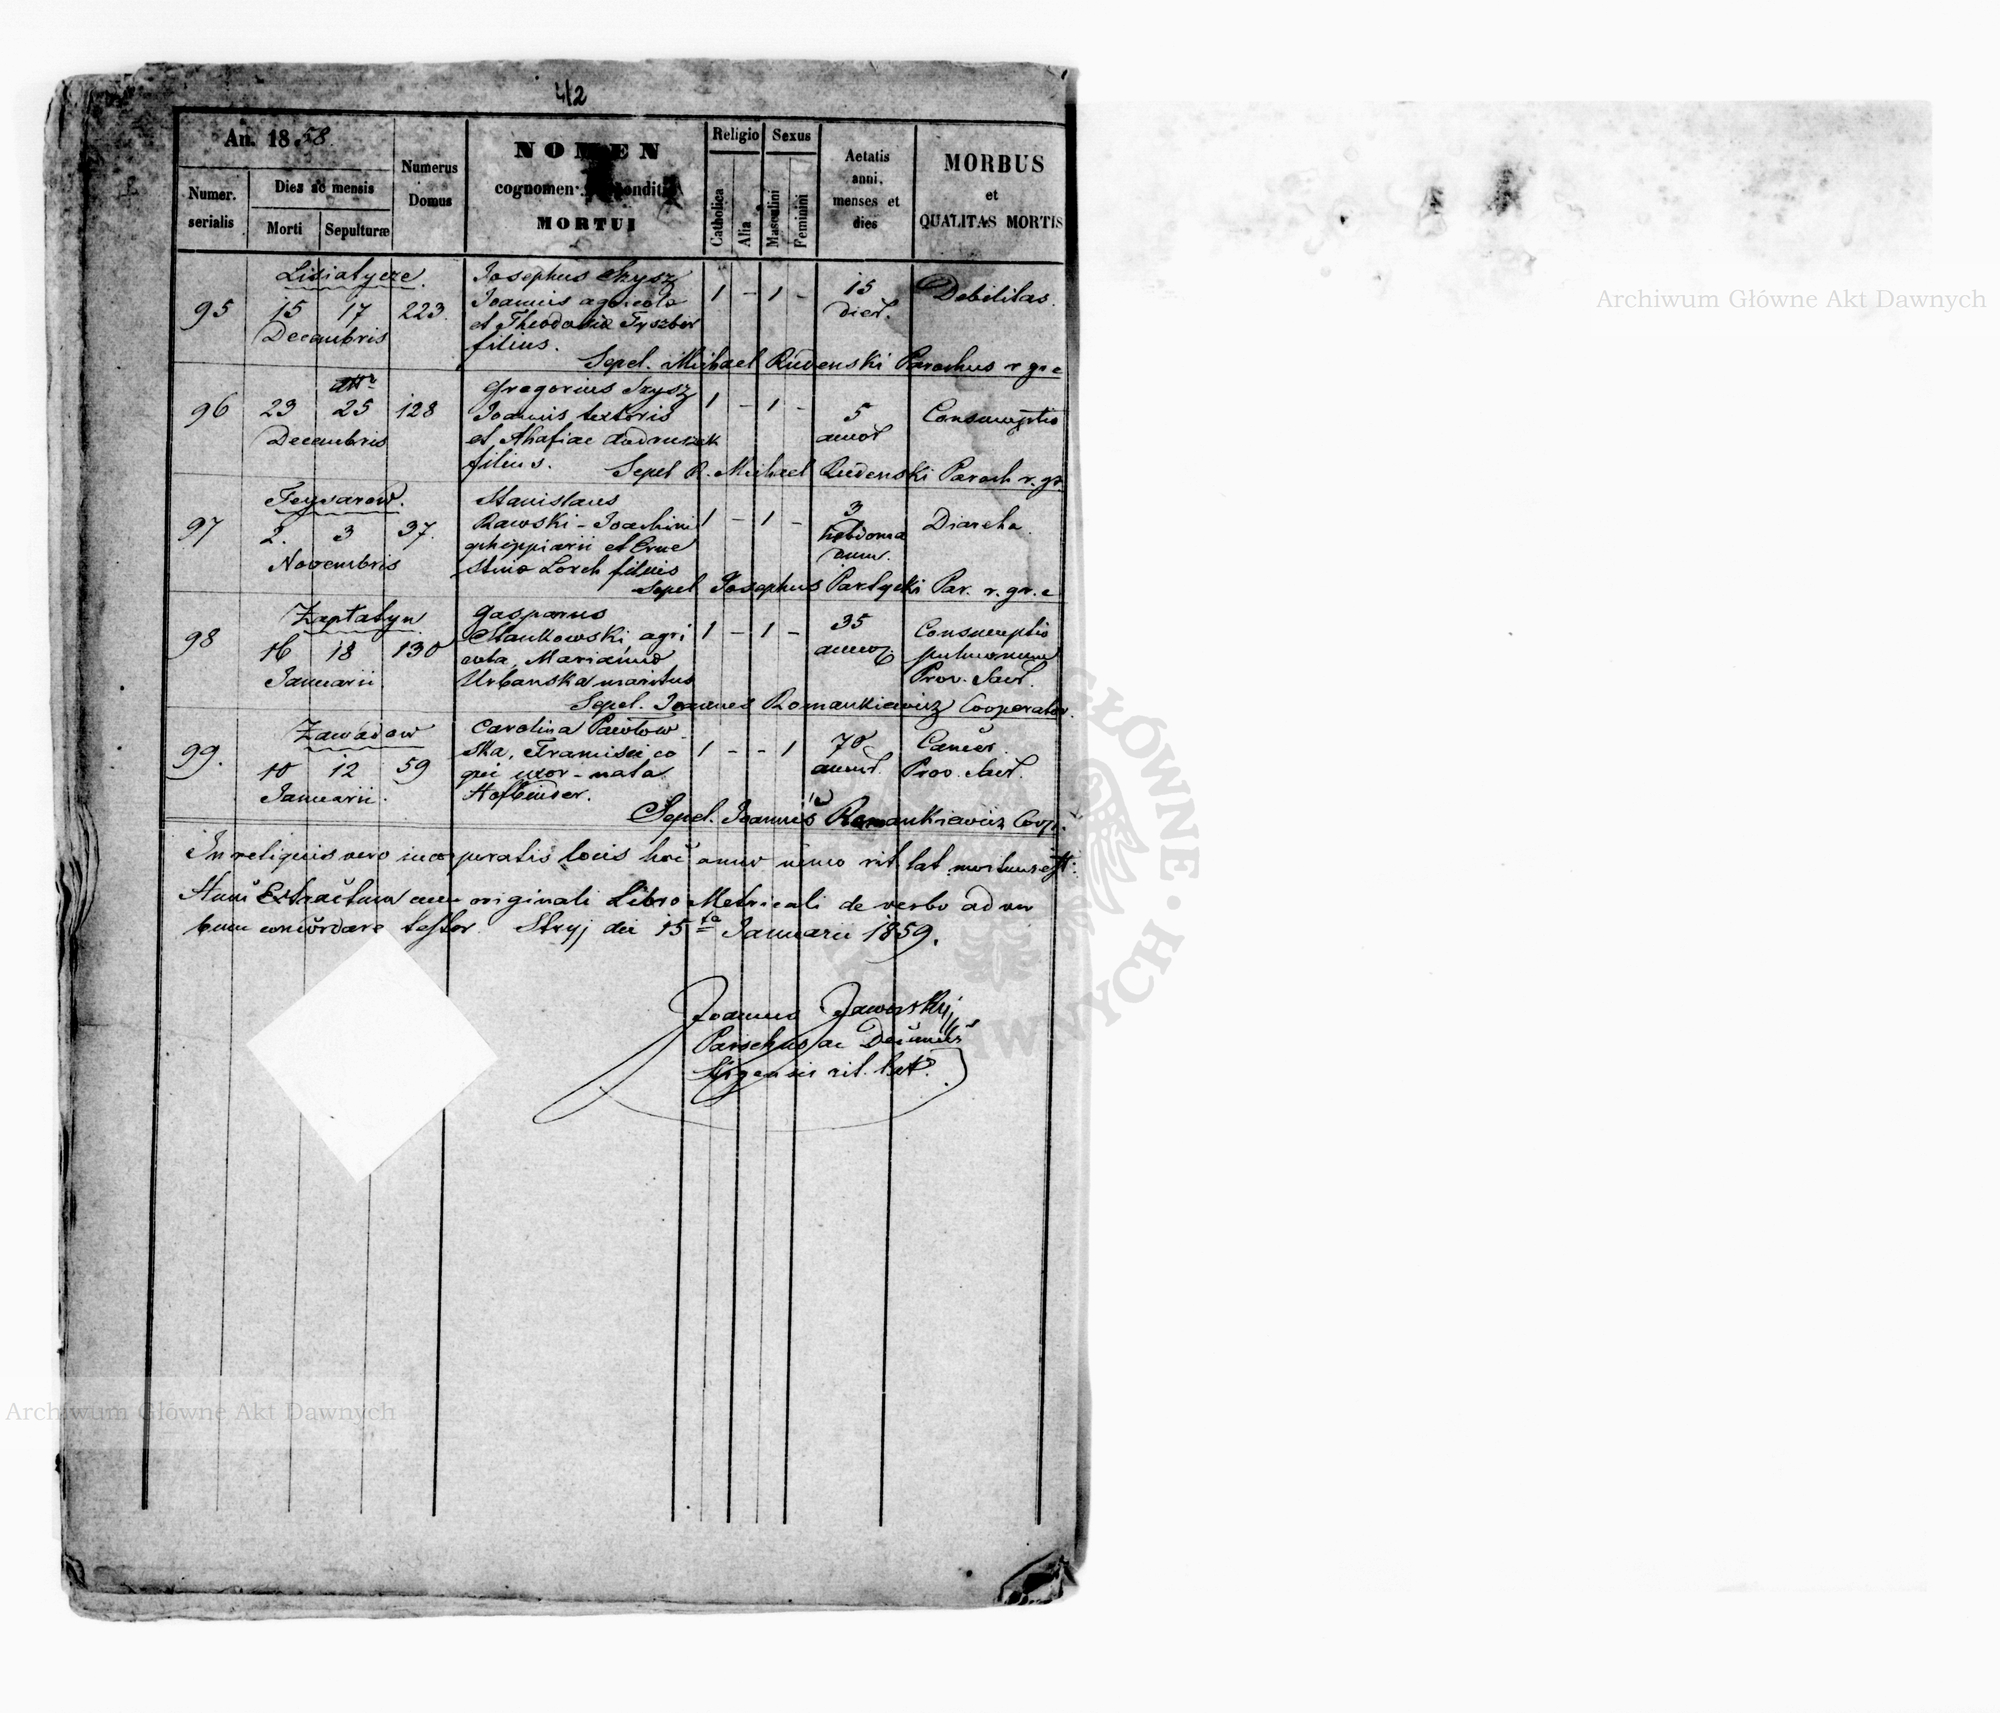 412
An. 1858
Numer. serialis
Dies ac mensis
Morti
Sepulturæ
Numerus Domus
NOMEN
cognomen condit
MORTUI
Religio
Catholica
Alia
Sexus
Masculini
Feminini
Aetatis anni, menses et dies
MORBUS
et
QUALITAS MORTIS
Lisiatycze.
95 15 17 223.
Decembris
Josephus Szysz
Joannis agricola
et Theodosia
filius.
1 - 1 -
15
dier.
Debilitas.
Sepel. Michael Rudenski Parochus r. gr. c
96 23 25 128
Decembris
Gregorius Szysz
Joannis textoris
et Ahafiae Andruszek
filius.
1 - 1 -
5
annor
Consumptio
Sepel R. Michael Rudenski Paroch r. gr.
Feysarow.
97 2. 3 37.
Novembris
Stanislaus
Rawski - Joachimi
ephippiarii et Erne
stina Lorch filius
1 - 1 -
3
hebdoma
dum.
Diareha
Sepel Josephus Partycki Par. r. gr. c
Zaplatyn
98 16 18 130
Januarii
Gasparus
Stankowski agri
cola, Marianna
Urbanska maritus
1 - 1 -
35
annor
Consumptio
pulmonum
Prov. Sacr.
Sepel. Joannes Romankiewicz Cooperator.
Zawadow
99. 10 12 59
Januarii.
Carolina Pawlow
ska, Francisci co
qui uxor - nata
1 - - 1
70
annor.
Cancer.
Prov. Sacr.
Sepel. Joannes Romankiewicz Coop.
In reliquis vero incorporatis locis hoc anno nemo rit lat mortuus est.
Hunc Extractum cum originali Libro Metricali de verbo ad ver
bum concordare testor. Stryj die 15ta Januarii 1859.
Joannes Jaworskij
Parochus ac Decanus
Stryensis rit. lat.
Archiwum Główne Akt Dawnych
GŁÓWNE
DAWNYCH
Archiwum Główne Akt Dawnych